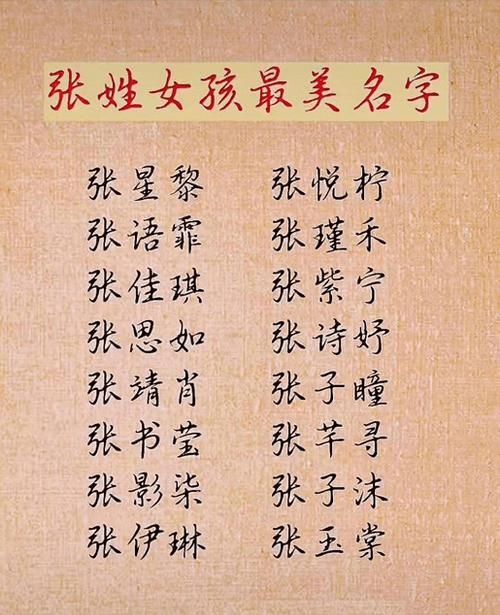 张姓女孩最美名字
张星黎 张悦柠
张语霏 张瑾禾
张佳琪 张紫宁
张思如 张诗妤
张靖肖 张子瞳
张书莹 张芊寻
张影柒 张子沫
张伊琳 张玉棠